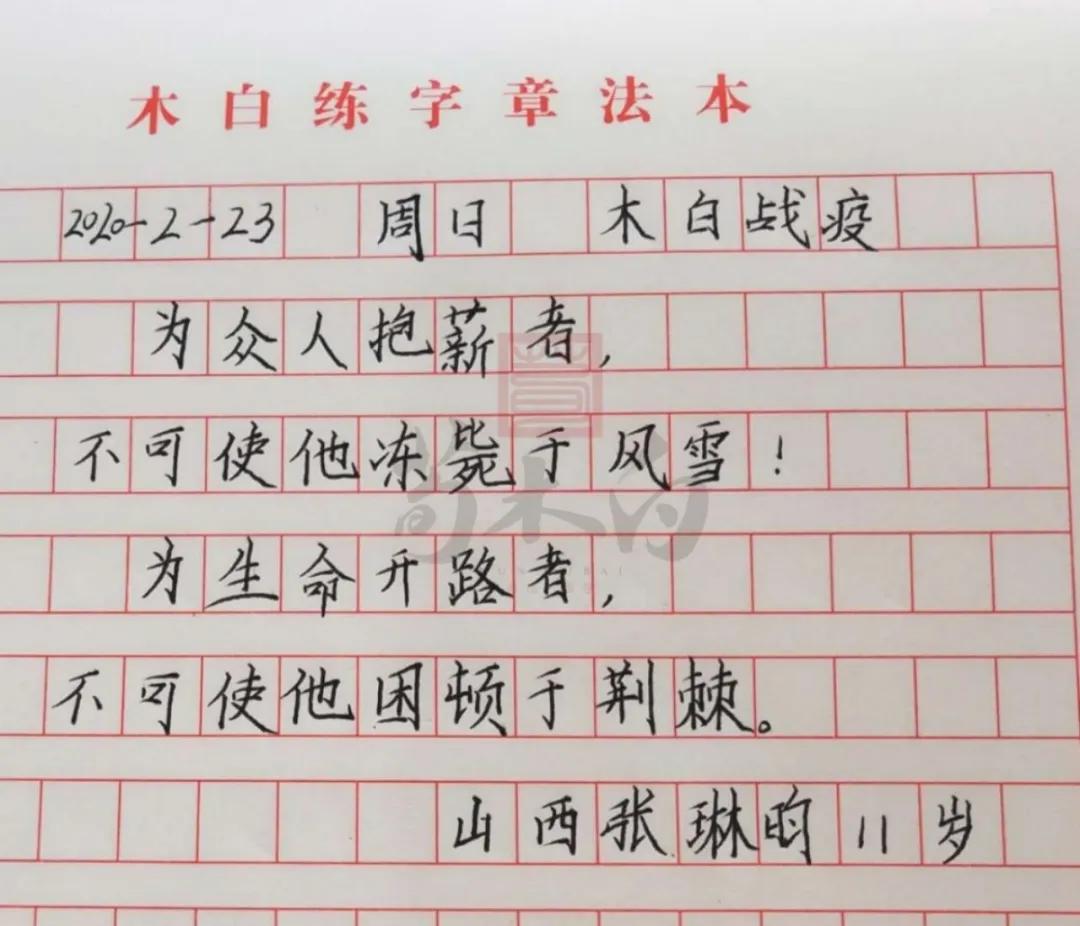 木白练字章法本
2020-2-23 周日 木白战疫
为众人抱薪者,
不可使他冻毙于风雪!
为生命开路者,
不可使他困顿于荆棘。
山西张琳昀11岁